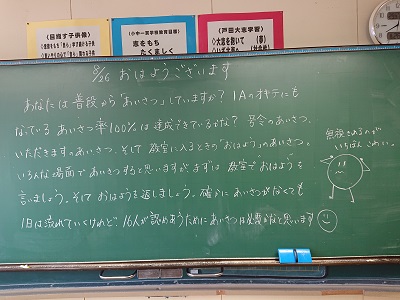 〈目指す子供像〉
〈小中一貫学園教育目標〉
志をもち
たくましく
〈戸田大志学習〉
大志を抱いて
8/26 おはようございます
あなたは普段から「あいさつ」していますか？1Aのオキテにも
なっている あいさつ率100%は達成できているかな？ 号令のあいさつ、
いただきますのあいさつ、そして教室に入るときの「おはよう」のあいさつ。
いろんな場面であいさつすると思いますが、まずは 教室で「おはよう」を
言いましょう。そして おはようを返しましょう。確かに あいさつがなくても
1日は流れていくけれど、16人が認めあうために あいさつは必要かなと思います
無視されるのが
いちばんこわい。